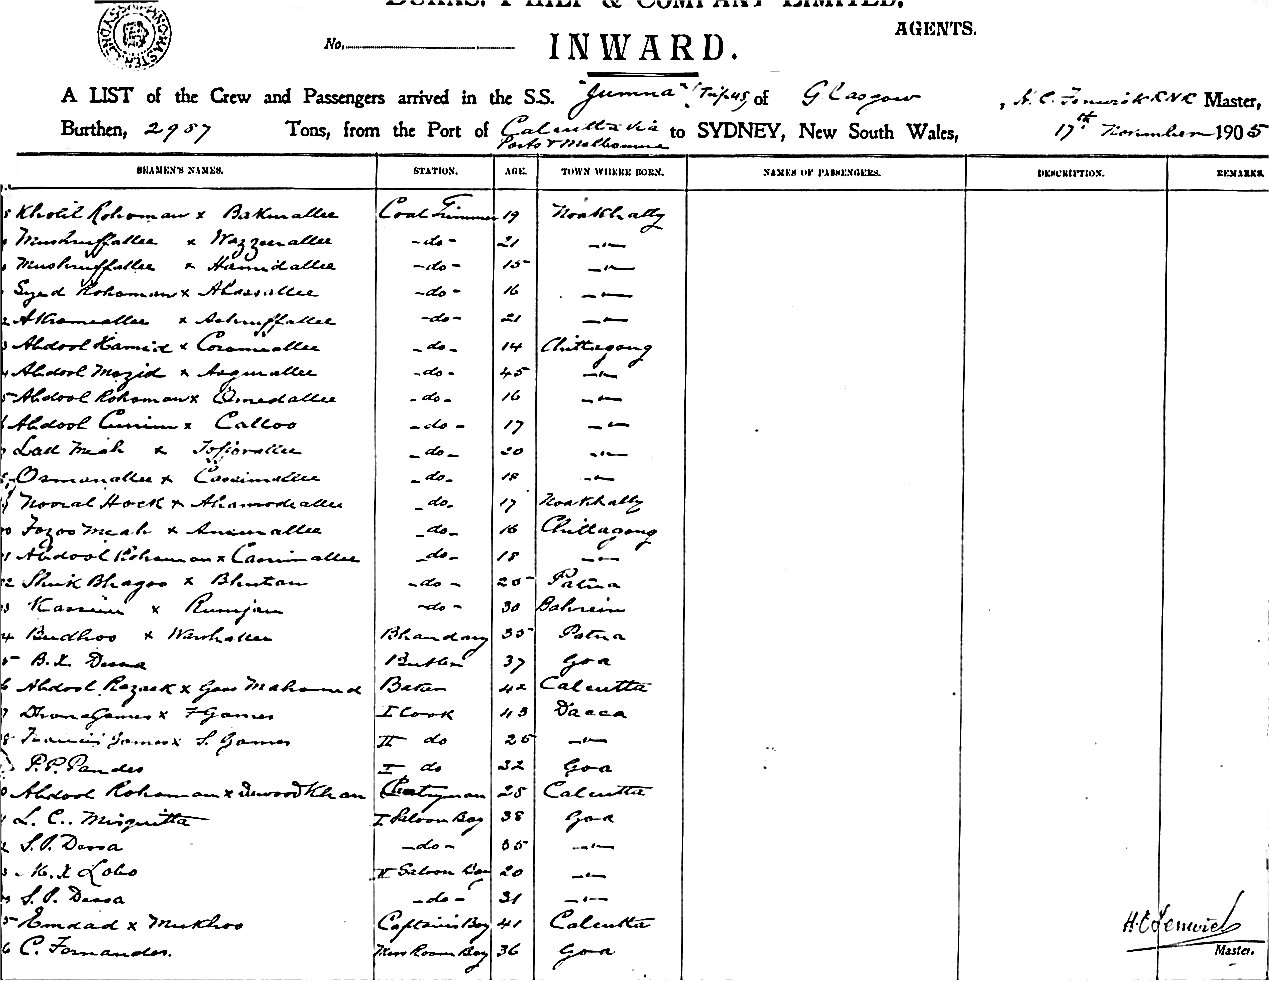 BURNS, PHILP & COMPANY LIMITED,
AGENTS.
No.
INWARD.
A LIST of the Crew and Passengers arrived in the S.S. "Jumna" of Glasgow, H. C. Fenwick RNR Master,
Burthen, 2987 Tons, from the Port of Calcutta via to SYDNEY, New South Wales, 17th November 1905
Ports & Melbourne
SEAMEN'S NAMES. STATION. AGE. TOWN WHERE BORN. NAMES OF PASSENGERS. DESCRIPTION. REMARKS
Kholil Rohoman x Bakurallee Coal Trimmer 19 Noakhally
Mushruffallee x Wazzeerallee -do- 21 -"-
Mushruffallee x Hamidallee -do- 15 -"-
Syed Rohoman x -do- 16 -"-
x Ashruffallee -do- 21 -"-
Abdool Hamid x -do- 14 Chittagong
Abdool Mozid x -do- 45 -"-
Abdool Rohoman x Omedallee -do- 16 -"-
Abdool x Calloo -do- 17 -"-
Lall Meah x -do- 20 -"-
Osmanallee x -do- 18 -"-
Nooral Hock x -do- 17 Noakhally
Fozoo Meah x -do- 16 Chittagong
Abdool Rohoman x Cassimallee -do- 18 -"-
Shik Bhagoo x Bhutan -do- 20 Patna
Kassim x Rumjan -do- 30 Bahrein
Budhoo x Bhandary 35 Patna
B.X. Dessa Butler 37 Goa
Abdool Razack x Goos Mahomed Baker 42 Calcutta
x F Gomes I Cook 43 Dacca
Francis x S. Gomes II do 25 -"-
P.P. Pandes I do 32 Goa
Abdool Rohoman x Dawood Khan Pantryman 28 Calcutta
L. C. Misquitta I Saloon Boy 38 Goa
S.P. Dessa -do- 35 -"-
M. X Lobo II Saloon Boy 20 -"-
S. P. Dessa -do- 31 -"-
Emdad x Mukhoo Captain's Boy 41 Calcutta
C. Fernandes. Mess Room Boy 36 Goa
H.C Fenwick
Master.